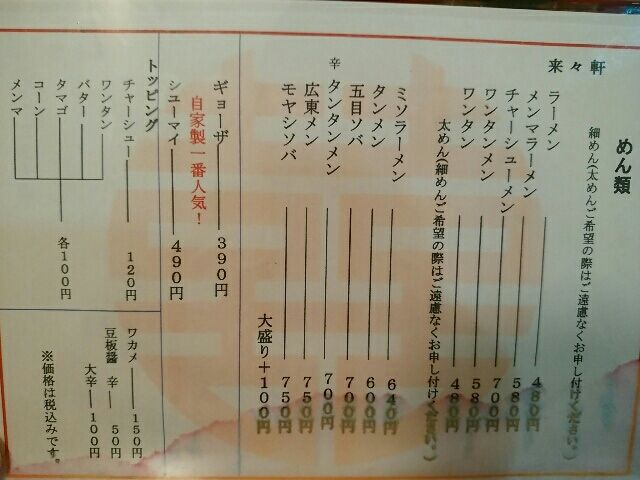 来々軒
めん類
細めん(太めんご希望の際はご遠慮なくお申し付けください。)
ラーメン 480円
メンマラーメン 580円
チャーシューメン 700円
ワンタンメン 580円
ワンタン 480円
太めん(細めんご希望の際はご遠慮なくお申し付けください。)
ミソラーメン 640円
タンメン 600円
五目ソバ 700円
辛 タンタンメン 700円
広東メン 750円
モヤシソバ 750円
大盛り+100円
ギョーザ 390円
自家製一番人気!
シューマイ 490円
トッピング
チャーシュー 120円
ワンタン
バター
タマゴ
コーン
メンマ
各100円
ワカメ 150円
豆板醤 辛 50円
大辛 100円
※価格は税込みです。